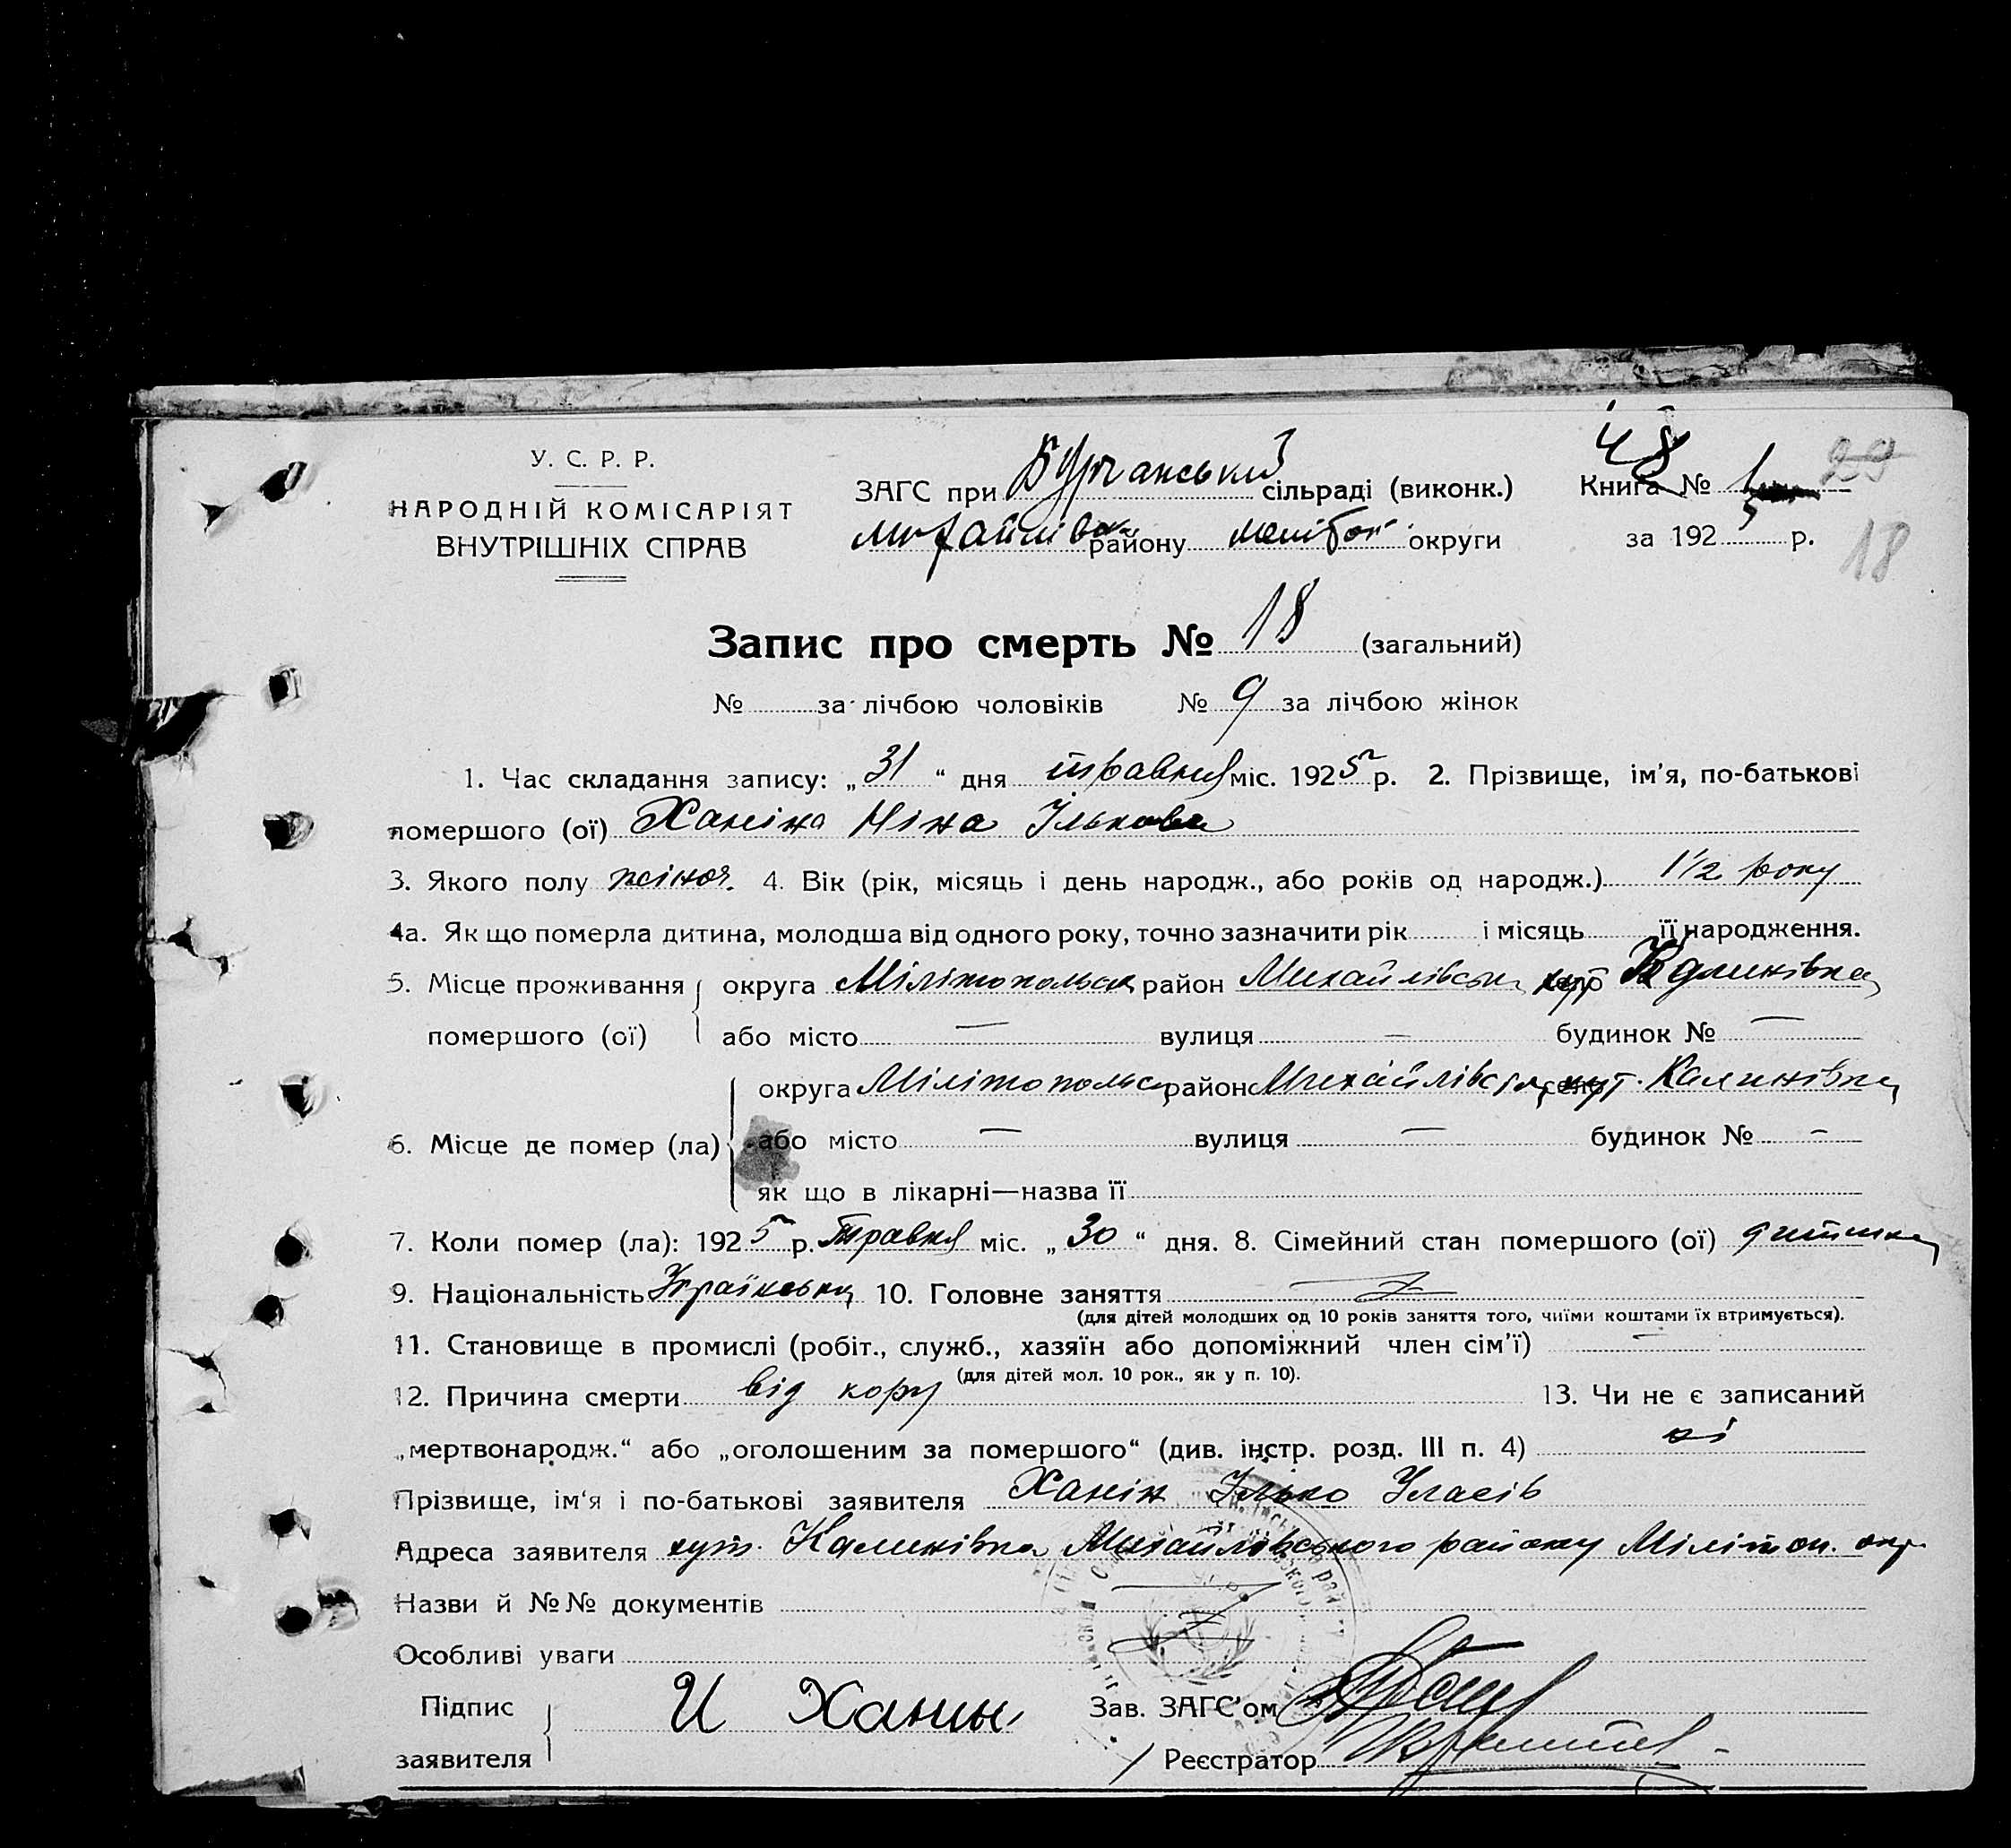 У. С. Р. Р.
НАРОДНІЙ КОМІСАРІЯТ
ВНУТРІШНІХ СПРАВ
ЗАГС при Бурчанський сільраді (виконк.)
району округи
48
Книга № 1 29
за 192 5 р. 18
Запис про смерть № 18 (загальний)
№ за лічбою чоловіків № 9 за лічбою жінок
1. Час складання запису: „ 31 “ дня травня міс. 1925 р. 2. Прізвище, ім'я, по-батькові
помершого (ої) Ханіна Ніна Ількова
3. Якого полу жіноч. 4. Вік (рік, місяць і день народж., або років од народж.) 1 1/2 року
4а. Як що померла дитина, молодша від одного року, точно зазначити рік і місяць її народження.
5. Місце проживання помершого (ої) округа Мілітопольск район Михайлівськ хут Калинівка
або місто — вулиця — будинок № —
6. Місце де помер (ла) округа Мілітопольск район Михайлівськ хут. Калинівка
або місто — вулиця — будинок № -
як що в лікарні—назва її
7. Коли помер (ла): 1925 р. травня міс. „ 30 “ дня. 8. Сімейний стан помершого (ої) дитина
9. Національність Українська 10. Головне заняття
(для дітей молодших од 10 років заняття того, чиїми коштами їх втримується).
11. Становище в промислі (робіт., служб., хазяїн або допоміжний член сім'ї) —
(для дітей мол. 10 рок., як у п. 10).
12. Причина смерти від кору 13. Чи не є записаний
„мертвонародж.“ або „оголошеним за помершого“ (див. інстр. розд. III п. 4) ні
Прізвище, ім'я і по-батькові заявителя Ханін Ілько Уласів
Адреса заявителя хут. Калинівка Михайлівського району Мілітоп. окр.
Назви й №№ документів
Особливі уваги
Підпис заявителя И Ханин
Зав. ЗАГС'ом
Реєстратор